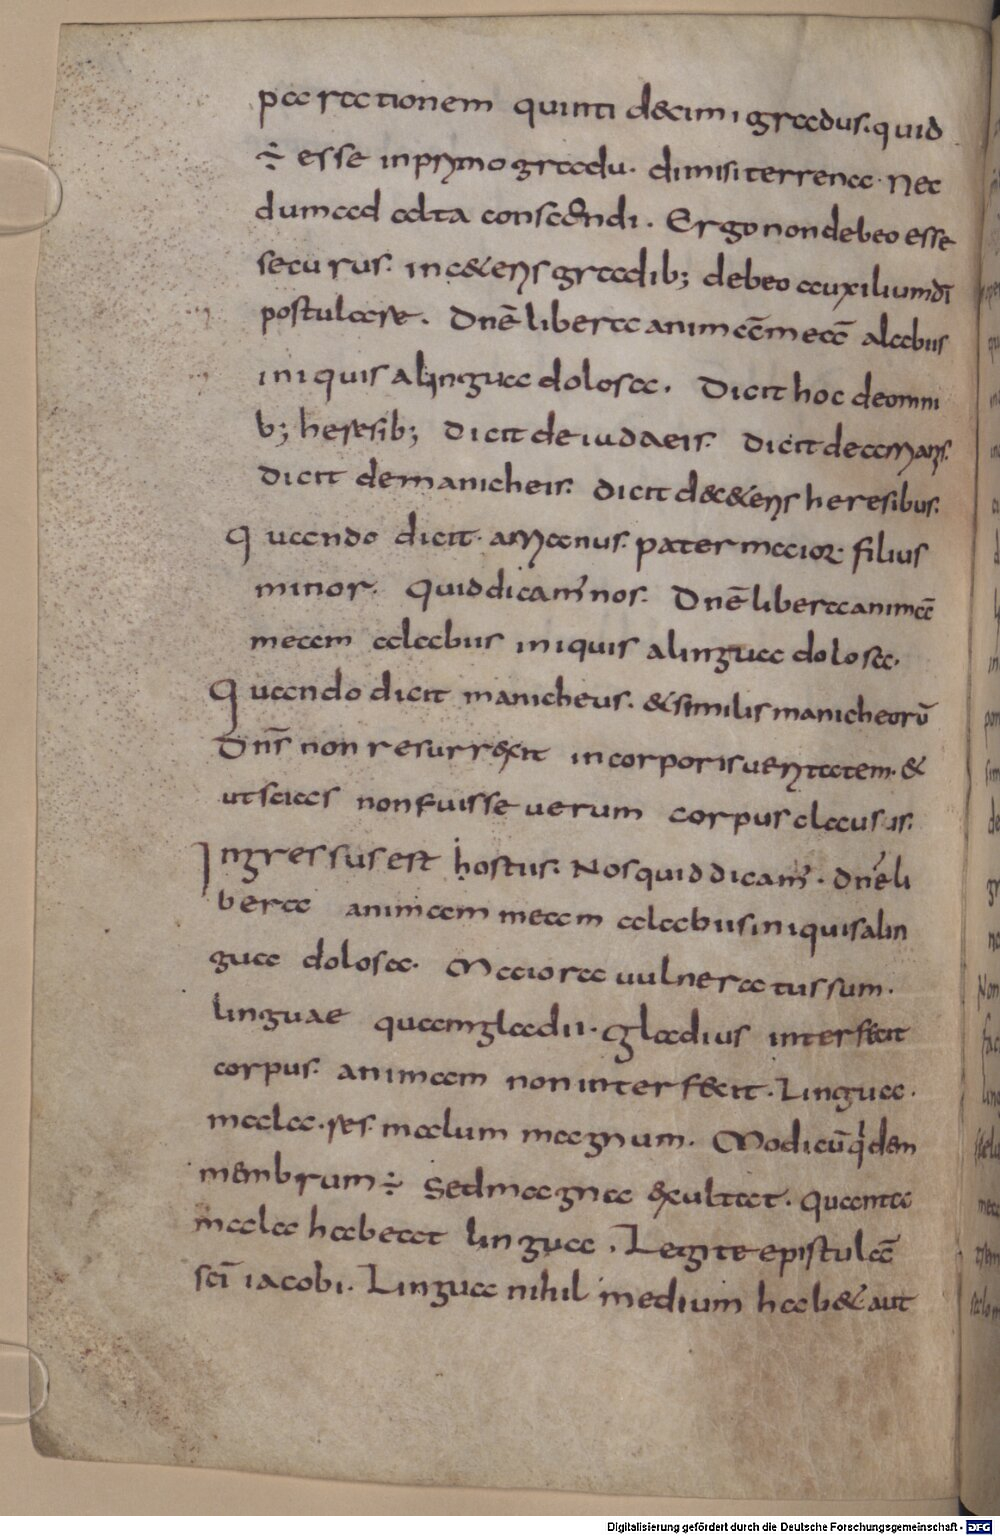 parationem quinti decimi gradus. quid
÷ esse in primo gradu. dimisi terrena. Nec
dum ad alta conscendi. Ergo non debeo esse
securus. in ceteris gradib; debeo auxilium dī
postulare. Dnē libera animā meā alabiis
iniquis a lingua dolosa. Dicit hoc de omni
b; heresib; dicit de iudaeis. dicit de arrianis.
dicit de manicheis. dicit de ceteris heresibus.
Quando dicit arrianus. pater maior filius
minor. Quid dicam' nos. Dnē libera animā
meam a labiis iniquis a lingua dolosa.
Quando dicit manicheus. & similis manicheorū
Dns̄ non resurrexit in corporis ueritatem. &
ut scias non fuisse uerum corpus clausis.
Ingressus est hostiis. Nos quid dicam'. dnē li
bera animam meam a labiis iniquis a lin
gua dolosa. Maiora uulnera tussum.
linguae quam gladii. gladius interfecit
corpus. animam non interfecit. Lingua.
mala. res. malum magnum. Modicū qdem
membrum ÷ sed magna exultat. quanta
mala habeat lingua. Legite epistulā
scī iacobi. Lingua nihil medium hab& aut
Digitalisierung gefördert durch die Deutsche Forschungsgemeinschaft - DFG